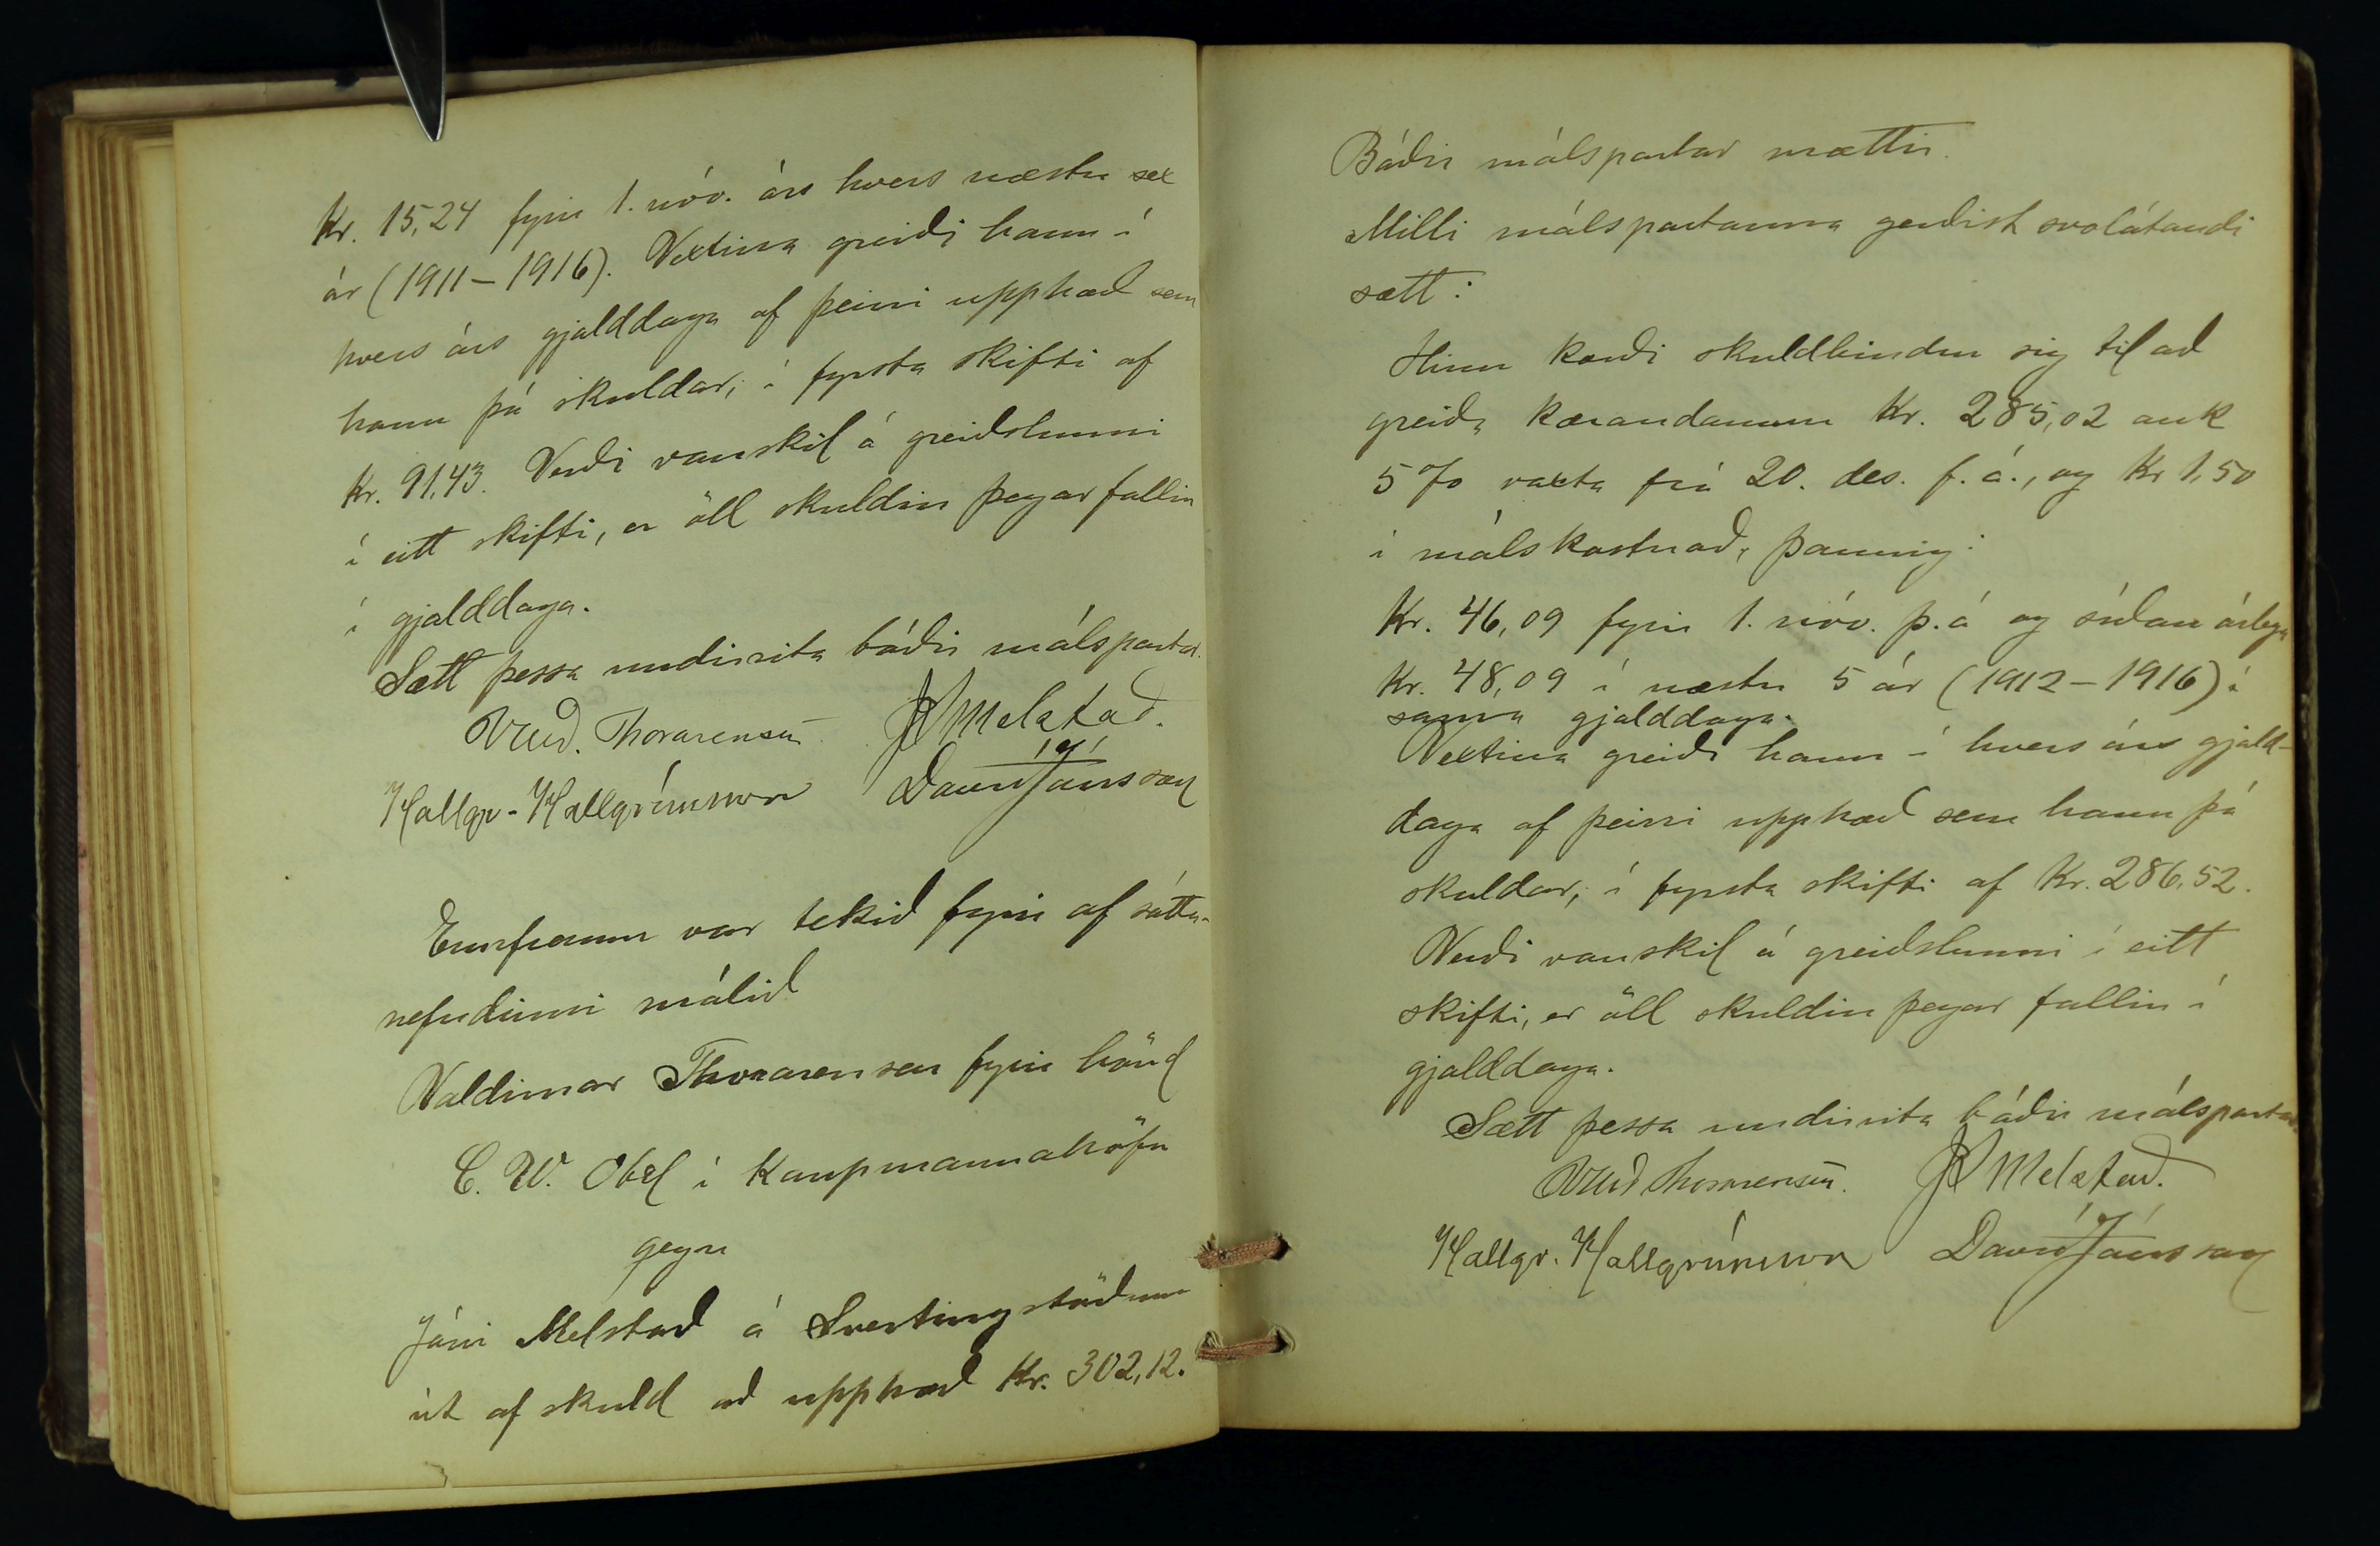 Kr. 15,24 fyrir 1. nóv. árs hvers næstu sex
ár (1911-1916). Vextina greiði hann í
hvers árs gjalddaga af þeirri upphæð sem
hann þá skuldar, í fyrsta skifti af
Kr. 91,43. Verði vanskil á greiðslunni
í eitt skifti, er öll skuldin þegar fallin
í gjalddaga.
Sætt þessa undirrita báðir málspartar.
Thorarensen JMelstað.
Hallgr. Hallgrímsson Davíð Jónsson
Ennfremur var tekið fyrir af sátta-
nefndinni málið
Valdimar Thorarensen fyrir hönd
C. W. Obel í Kaupmannahöfn
gegn
Jóni Melstað á Svertingsstöðum
út af skuld að upphæð Kr. 302,12.
Báðir málspartar mættir.
Milli málspartanna gerðist svolátandi
sætt:
Hinn kærði skuldbindur sig til að
greiða kærandanum Kr. 285,02 auk
5% vaxta frá 20. des. f. á., og Kr 1,50
í málskostnað, þannig:
Kr. 46,09 fyrir 1. nóv. þ. á og síðan árlega
Kr. 48,09 í næstu 5 ár (1912-1916) í
sama gjalddaga.
Vextina greiði hann í hvers árs gjald-
daga af þeirri upphæð sem hann þá
skuldar, í fyrsta skifti af Kr. 286,52.
Verði vanskil á greiðslunni í eitt
skifti, er öll skuldin þegar fallin í
gjalddaga.
Sætt þessa undirrita báðir málspartar.
Thorarensen. JMelstað.
Hallgr. Hallgrímsson Davíð Jónsson